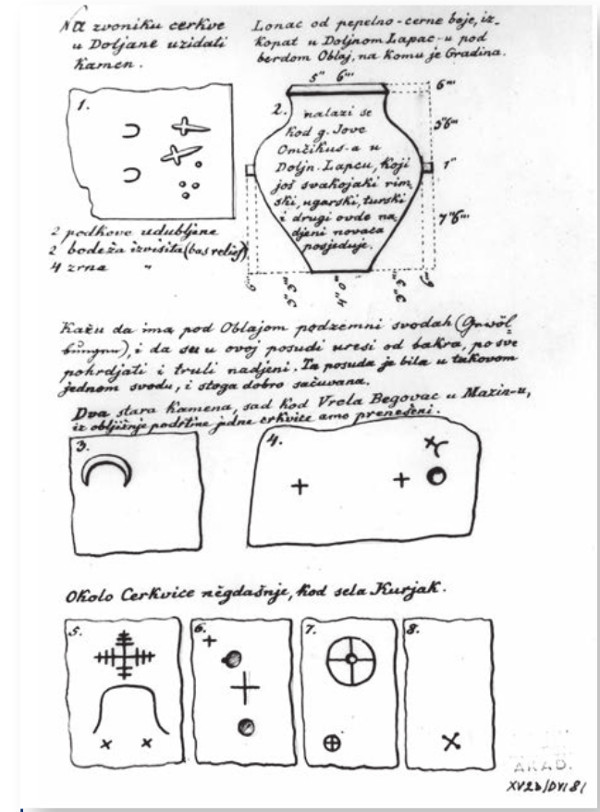 Na zvoniku cerkve
u Doljane uzidati
kamen.
Lonac od pepelno-cerne boje, iz-
kopat u Doljnom Lapac-u pod
berdom Oblaj, na komu je Gradina.
1.
2 podkove udubljene
2 bodeža izvisita (bas relief)
4 zrna "
5" 6'"
6'"
3"6'"
1"
7"6'"
2. nalazi se
kod g. Jove
Omčikus-a u
Doljn. Lapcu, koji
još svakojaki rim-
ski, ugarski, turski
i drugi ovde na-
djeni novaca
posjeduje.
4"0'"
Kažu da ima pod Oblajom podzemni svodah (Gewöl-
bungen), i da su u ovoj posudi uresi od bakra, po sve
pohrdjati i truli nadjeni. Ta posuda je bila u takovom
jednom svodu, i stoga dobro sačuvana.
Dva stara kamena, sad kod Vrela Begovac u Mazin-u,
iz obližnje podrtine jedne crkvice amo preneseni.
3.
4.
Okolo Cerkvice něgdašnje, kod sela Kurjak.
5.
6.
7.
8.
AKAD.